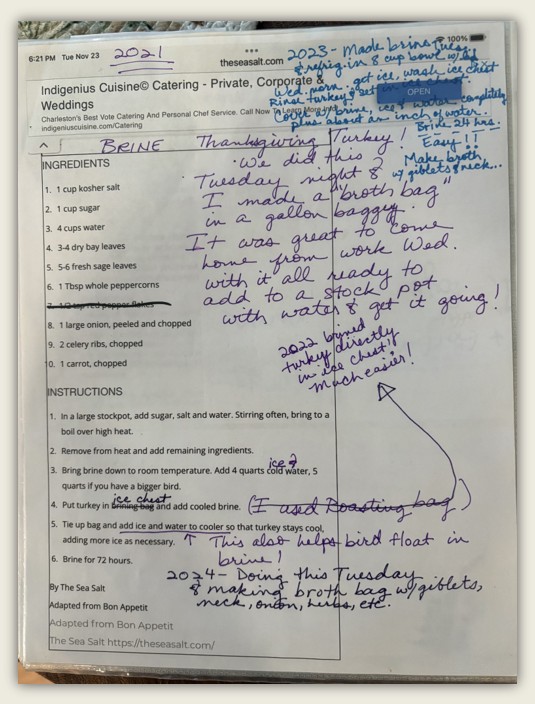 6:21 PM Tue Nov 23
2021
theseasalt.com
100%
Indigenius Cuisine© Catering - Private, Corporate &
Weddings
Charleston's Best Vote Catering And Personal Chef Service. Call Now To Learn More Info
indigeniuscuisine.com/Catering
OPEN
2023 - Made brine Tues.
& refrig. in 8 cup bowl w/ lid
Wed. morn. get ice, wash ice chest
Rinse turkey & set in ice chest.
Cover w/ brine, ice & water completely
plus about an inch of water.
Brine 24 hrs.
Easy!!
Make broth
w/ giblets & neck...
BRINE Thanksgiving Turkey!
We did this
Tuesday night &
I made a "broth bag"
in a gallon baggy.
It was great to come
home from work Wed.
with it all ready to
add to a stock pot
with water & get it going!
2022 brined
turkey directly
in ice chest!
Much easier!
INGREDIENTS
1. 1 cup kosher salt
2. 1 cup sugar
3. 4 cups water
4. 3-4 dry bay leaves
5. 5-6 fresh sage leaves
6. 1 Tbsp whole peppercorns
7. 1/2 tsp red pepper flakes
8. 1 large onion, peeled and chopped
9. 2 celery ribs, chopped
0. 1 carrot, chopped
INSTRUCTIONS
1. In a large stockpot, add sugar, salt and water. Stirring often, bring to a
boil over high heat.
2. Remove from heat and add remaining ingredients.
ice
3. Bring brine down to room temperature. Add 4 quarts cold water, 5
quarts if you have a bigger bird.
ice chest
4. Put turkey in brining bag and add cooled brine. (I used Roasting bag)
5. Tie up bag and add ice and water to cooler so that turkey stays cool,
adding more ice as necessary. ↑ This also helps bird float in
brine!
6. Brine for 72 hours.
2024 - Doing this Tuesday
& making broth bag w/ giblets,
neck, onion, herbs, etc.
By The Sea Salt
Adapted from Bon Appetit
Adapted from Bon Appetit
The Sea Salt https://theseasalt.com/